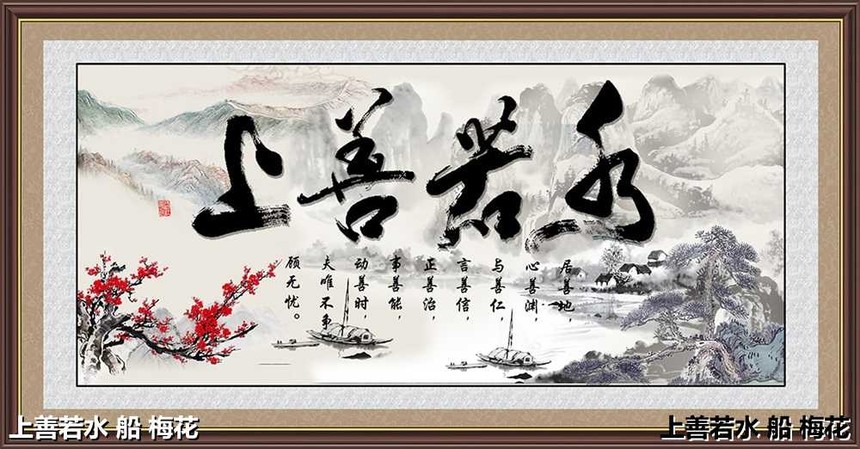 上善若水
居善地，
心善渊，
与善仁，
言善信，
正善治，
事善能，
动善时，
夫唯不争
顾无忧。
上善若水 船 梅花
上善若水. 船 梅花